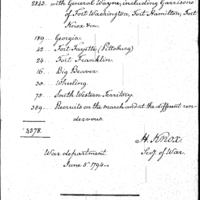 2843. with General Wayne, including Garrisons
of Fort Washington, Fort Hamilton, Fort
Knox &ca.
189. Georgia.
42. Fort Fayette (Pittsburg)
24. Fort Franklin.
16. Big Beaver.
30. Wheeling.
75. South Western Territory.
359. Recruits on the march and at the different ren-
dezvous.
3578.
H. Knox
Secy. of War.
War department
June 5th 1794.